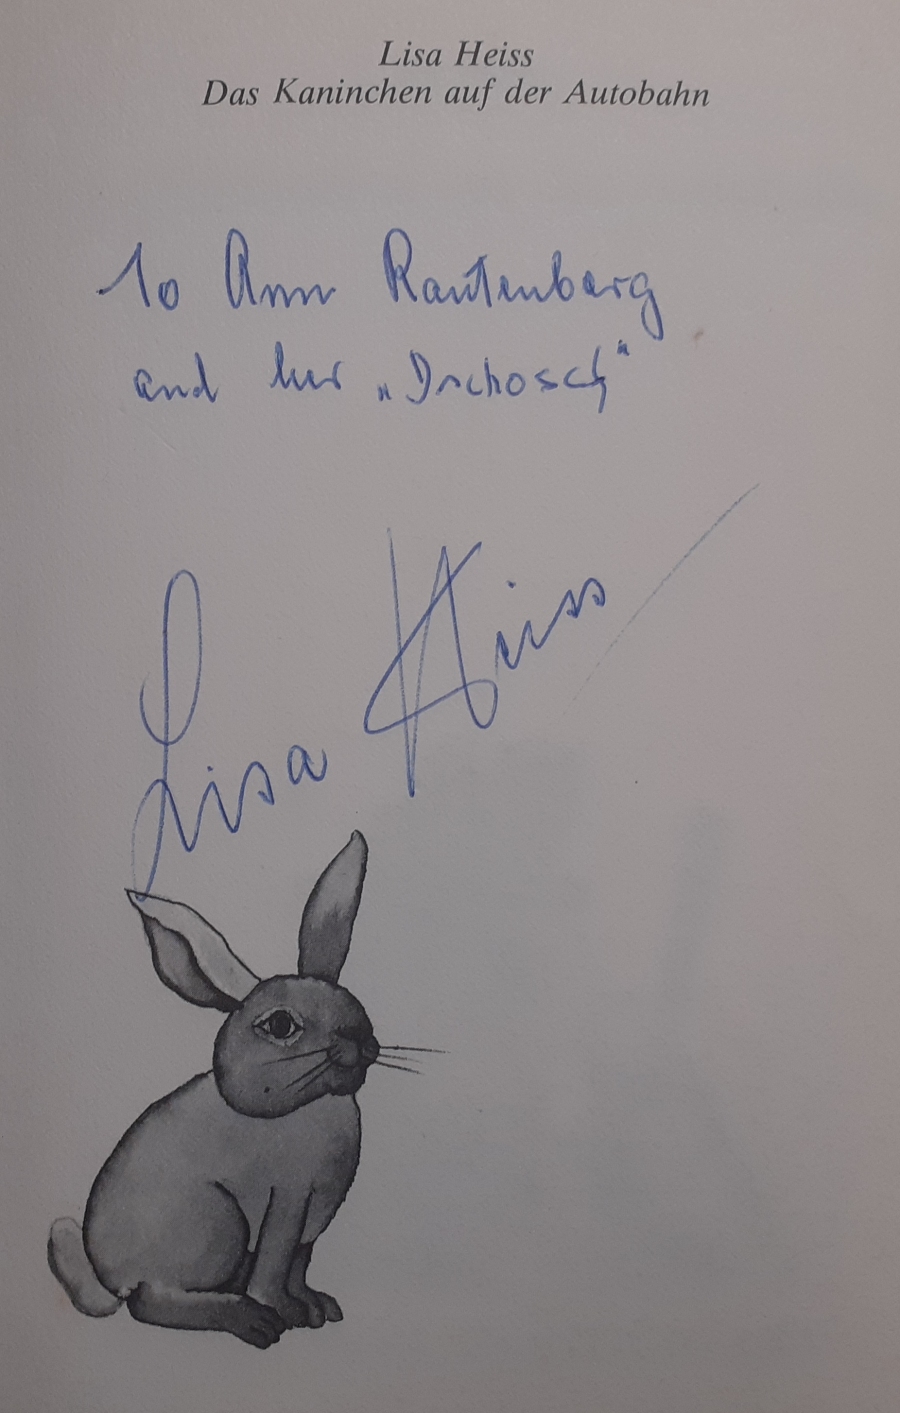 Lisa Heiss
Das Kaninchen auf der Autobahn
To Ann Rautenberg
and her „Dschosch“
Lisa Heiss